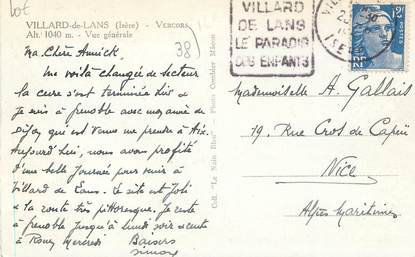 lot
VILLARD-de-LANS (Isère) - VERCORS
Alt. 1040 m. - Vue générale
38
Ma Chère Annick,
Me voilà changée de secteur
la cure s'est terminée hier &
je suis à Grenoble avec mon amie de
Dijon qui est venue me prendre à Aix.
Aujourd'hui, nous avons profité
d'une belle journée pour venir à
Villard de Lans. Le site est joli
& la route très pittoresque. Je reste
à Grenoble jusqu'à lundi soir & rentre
à mercredi Baisers
Simone
Coll. "Le Nain Bleu" Photo Combier Mâcon
VILLARD
DE LANS
LE PARADIS
DES ENFANTS
Mademoiselle A. Gallais
19, Rue Cros de Capéu
Nice
Alpes Maritimes